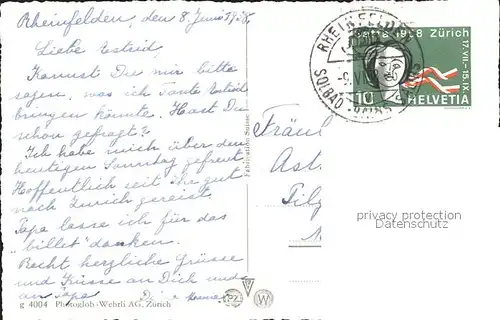 Rheinfelden, den 8. Juni 1958.
Liebe Astrid,
Kannst Du mir bitte
sagen, was ich Tante Astrid
bringen könnte. Hast Du
schon gefragt?
Ich habe mich über den
heutigen Sonntag gefreut.
Hoffentlich seid ihr gut
nach Zürich gereist.
Papa lasse ich für das
"billet" danken.
Recht herzliche Grüsse
und Küsse an Dich und
an Papa
g 4004 Photoglob-Wehrli AG, Zürich
Fabrication Suisse
RHEINFELDEN
SOLBAD
Saffa 1958 Zürich
17.VII.-15.IX.
10
HELVETIA
Fräul
Ast
Pilg
privacy protection
Datenschutz
PZ
W